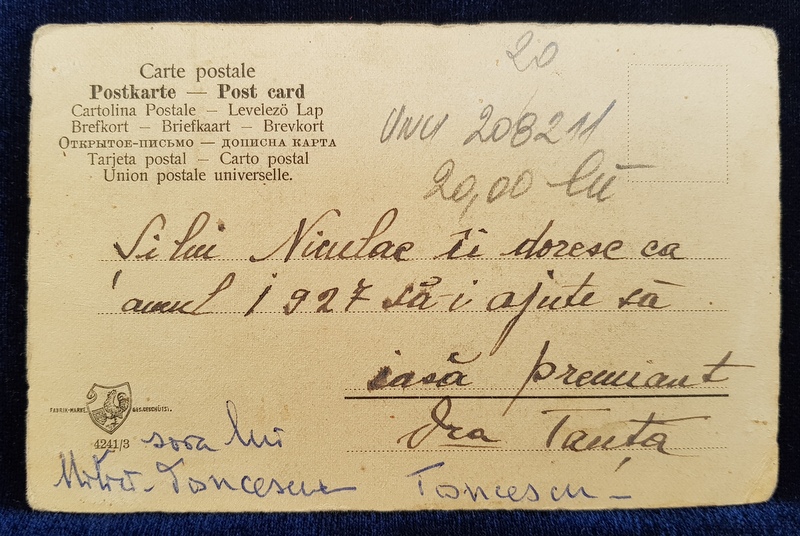 Carte postale
Postkarte — Post card
Cartolina Postale — Levelező Lap
Brefkort — Briefkaart — Brevkort
Открытое-письмо — дописна карта
Tarjeta postal — Carto postal
Union postale universelle.
20
208211
20,00 lei
Și lui Niculae îi doresc ca
anul 1927 să-i ajute să
iasă premiant
Dra Tanța
FABRIK-MARKE
GES. GESCHÜTZT.
4241/3
sora lui
Toncescu Toncescu